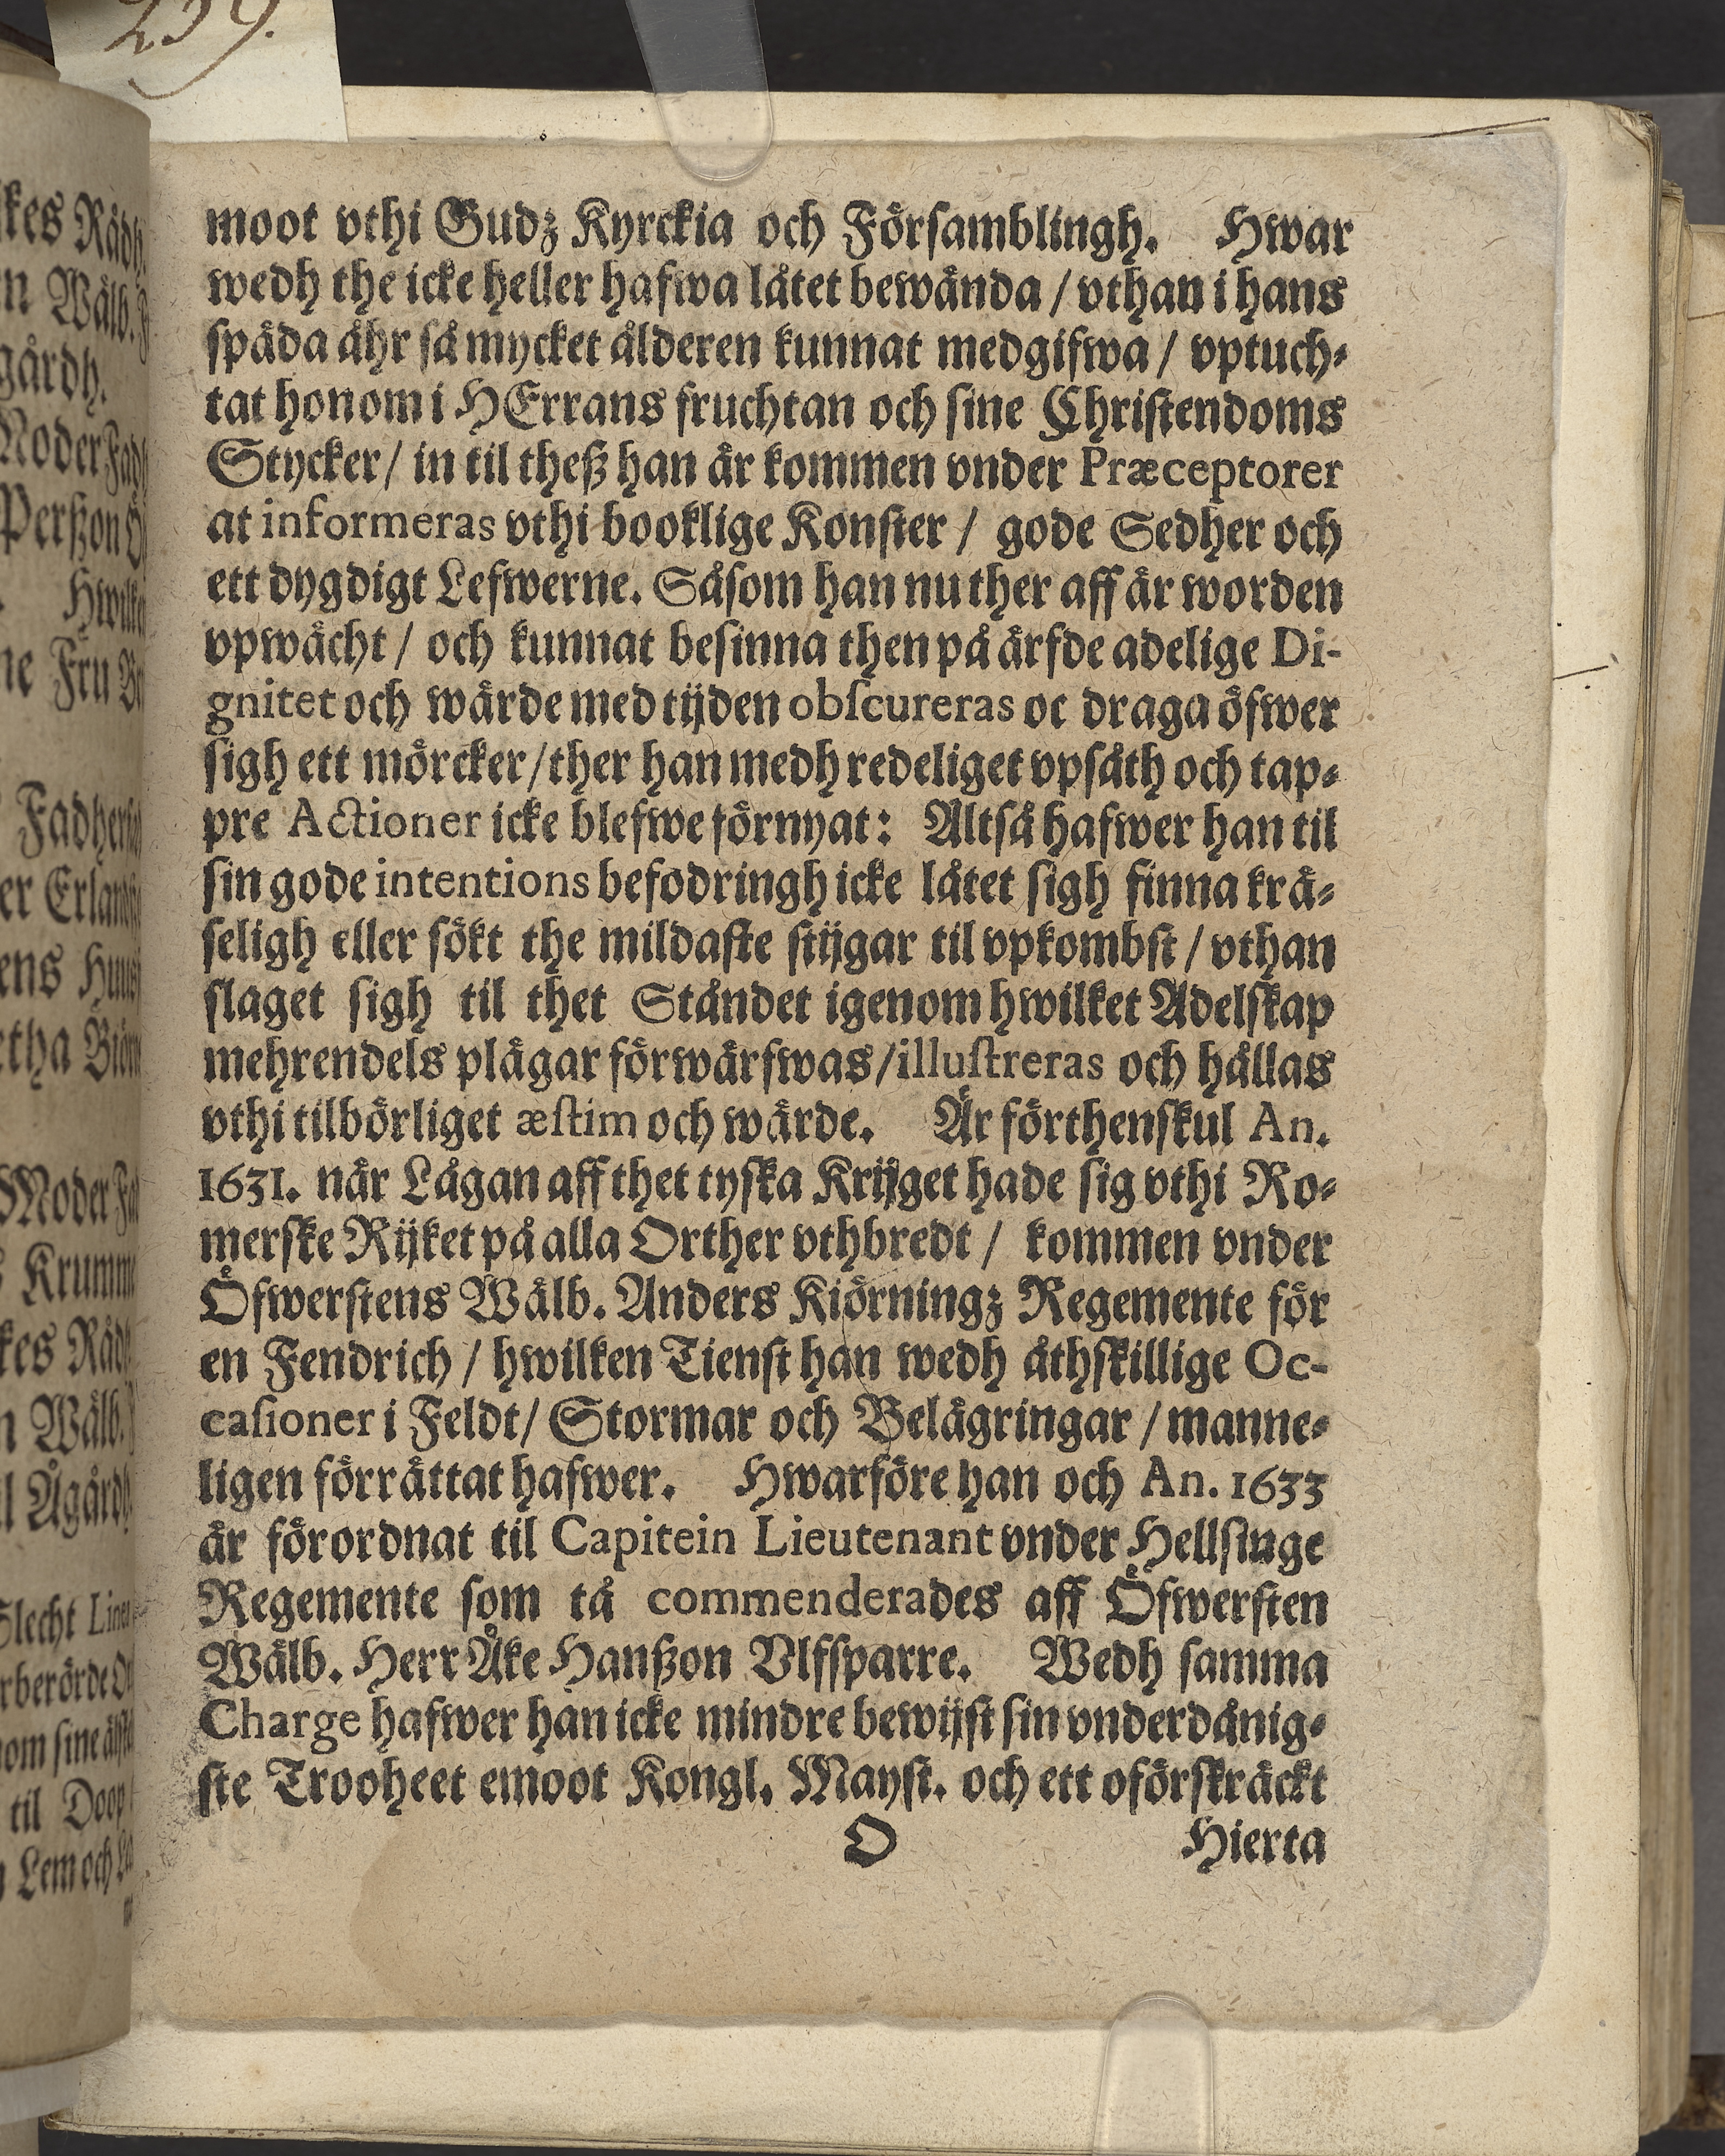 259.
moot vthi Gudz Kyrckia och Församblingh. Hwar
wedh the icke heller hafwa låtet bewända / vthan i hans
späda åhr så mycket ålderen kunnat medgifwa / vptuch-
tat honom i HErrans fruchtan och sine Christendoms
Stycker / in til theß han är kommen vnder Præceptorer
at informeras vthi booklige Konster / gode Sedher och
ett dygdigt Lefwerne. Såsom han nu ther aff är worden
vpwächt / och kunnat besinna then på ärfde adelige Di-
gnitet och wärde med tijden obscureras oc draga öfwer
sigh ett mörcker / ther han medh redeliget vpsåth och tap-
pre Actioner icke blefwe förnyat: Altså hafwer han til
sin gode intentions befodringh icke låtet sigh finna krä-
seligh eller sökt the mildaste stijgar til vpkombst / vthan
slaget sigh til thet Ståndet igenom hwilket Adelskap
mehrendels plägar förwärfwas / illustreras och hållas
vthi tilbörliget æstim och wärde. Är förthenskul An.
1631. när Lågan aff thet tyska Krijget hade sig vthi Ro-
merske Rijket på alla Orther vthbredt / kommen vnder
Öfwerstens Wälb. Anders Kiörningz Regemente för
en Fendrich / hwilken Tienst han wedh åthskillige Oc-
casioner i Feldt / Stormar och Belägringar / manne-
ligen förrättat hafwer. Hwarföre han och An. 1633
är förordnat til Capitein Lieutenant vnder Hellsinge
Regemente som tå commenderades aff Öfwersten
Wälb. Herr Åke Hanßon Vlfsparre. Wedh samma
Charge hafwer han icke mindre bewijst sin vnderdånig-
ste Trooheet emoot Kongl. Mayst. och ett oförskräckt
O Hierta